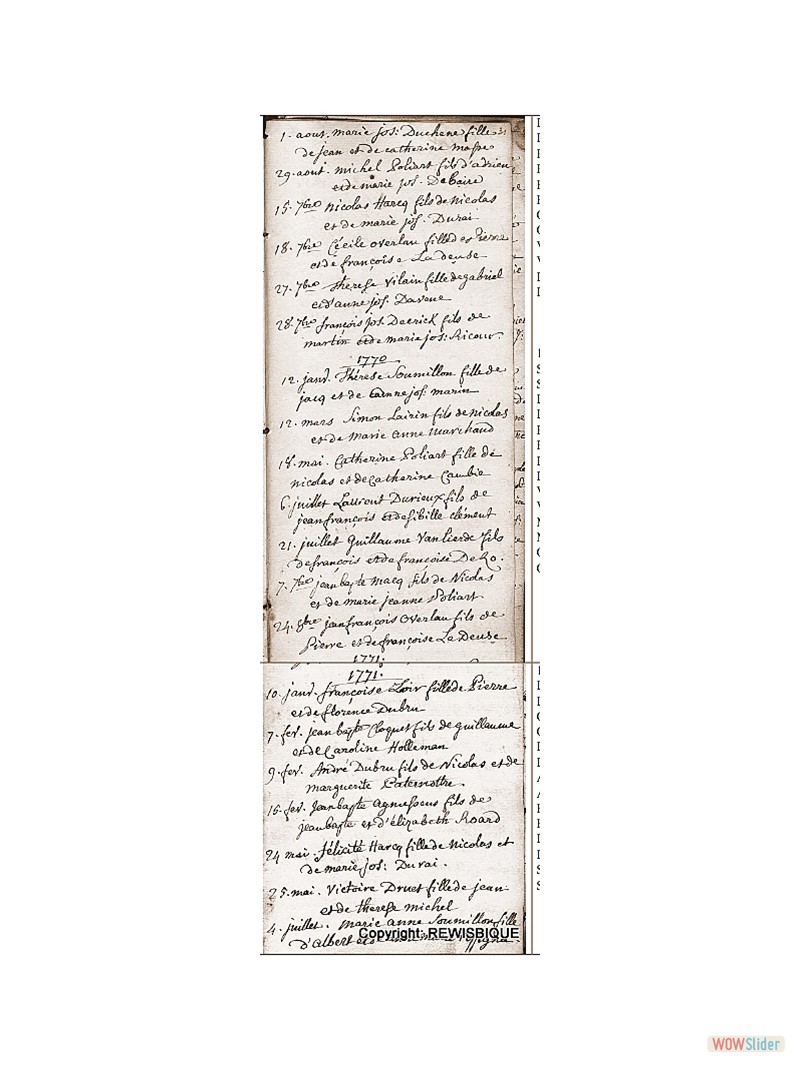 1. aout. marie jos: Duchene fille
de jean et de catherine
29. aout. michel Poliart fils d'adrien
et de marie jos. Debaire
15. 7bre nicolas Harcq fils de nicolas
et de marie jos. Durai
18. 7bre Cécile overlau fille de Pierre
et de françoise La deuse
27. 7bre therese Vilain fille de gabriel
et d'anne jos.
28. 7bre françois jos. Deerick fils de
martin et de marie jos: Ricour.
1770
12. janv. Thérese Soumillon fille de
jacq et de anne jos. marin
12. mars Simon Lairin fils de nicolas
et de Marie anne marchand
18. mai. Catherine Poliart fille de
nicolas et de Catherine Cambie
6. juillet Laurent Durieux fils de
jean françois et de sibille clément
21. juillet Guillaume Vanlierde fils
de françois et de françoise De Ro.
7. 7bre jean bapte macq fils de Nicolas
et de marie jeanne Poliart
24. 8bre jean françois overlau fils de
Pierre et de françoise La Deuse
1771.
1771.
10. janv. françoise Loir fille de Pierre
et de florence Dubru
7. fev. jean bapte Cloquet fils de guillaume
et de Caroline Holleman
9. fev. André Dubru fils de Nicolas et de
marguerite Paternottre.
15. fev. Jean bapte agnessens fils de
jean bapte et d'élizabeth Roard
24 mai. félicité Harcq fille de Nicolas et
de marie jos: Durai.
25. mai. Victoire Druet fille de jean
et de therese michel
4. juillet. Marie anne Soumillon fille
d'albert
Copyright: REWISBIQUE
WOWSlider